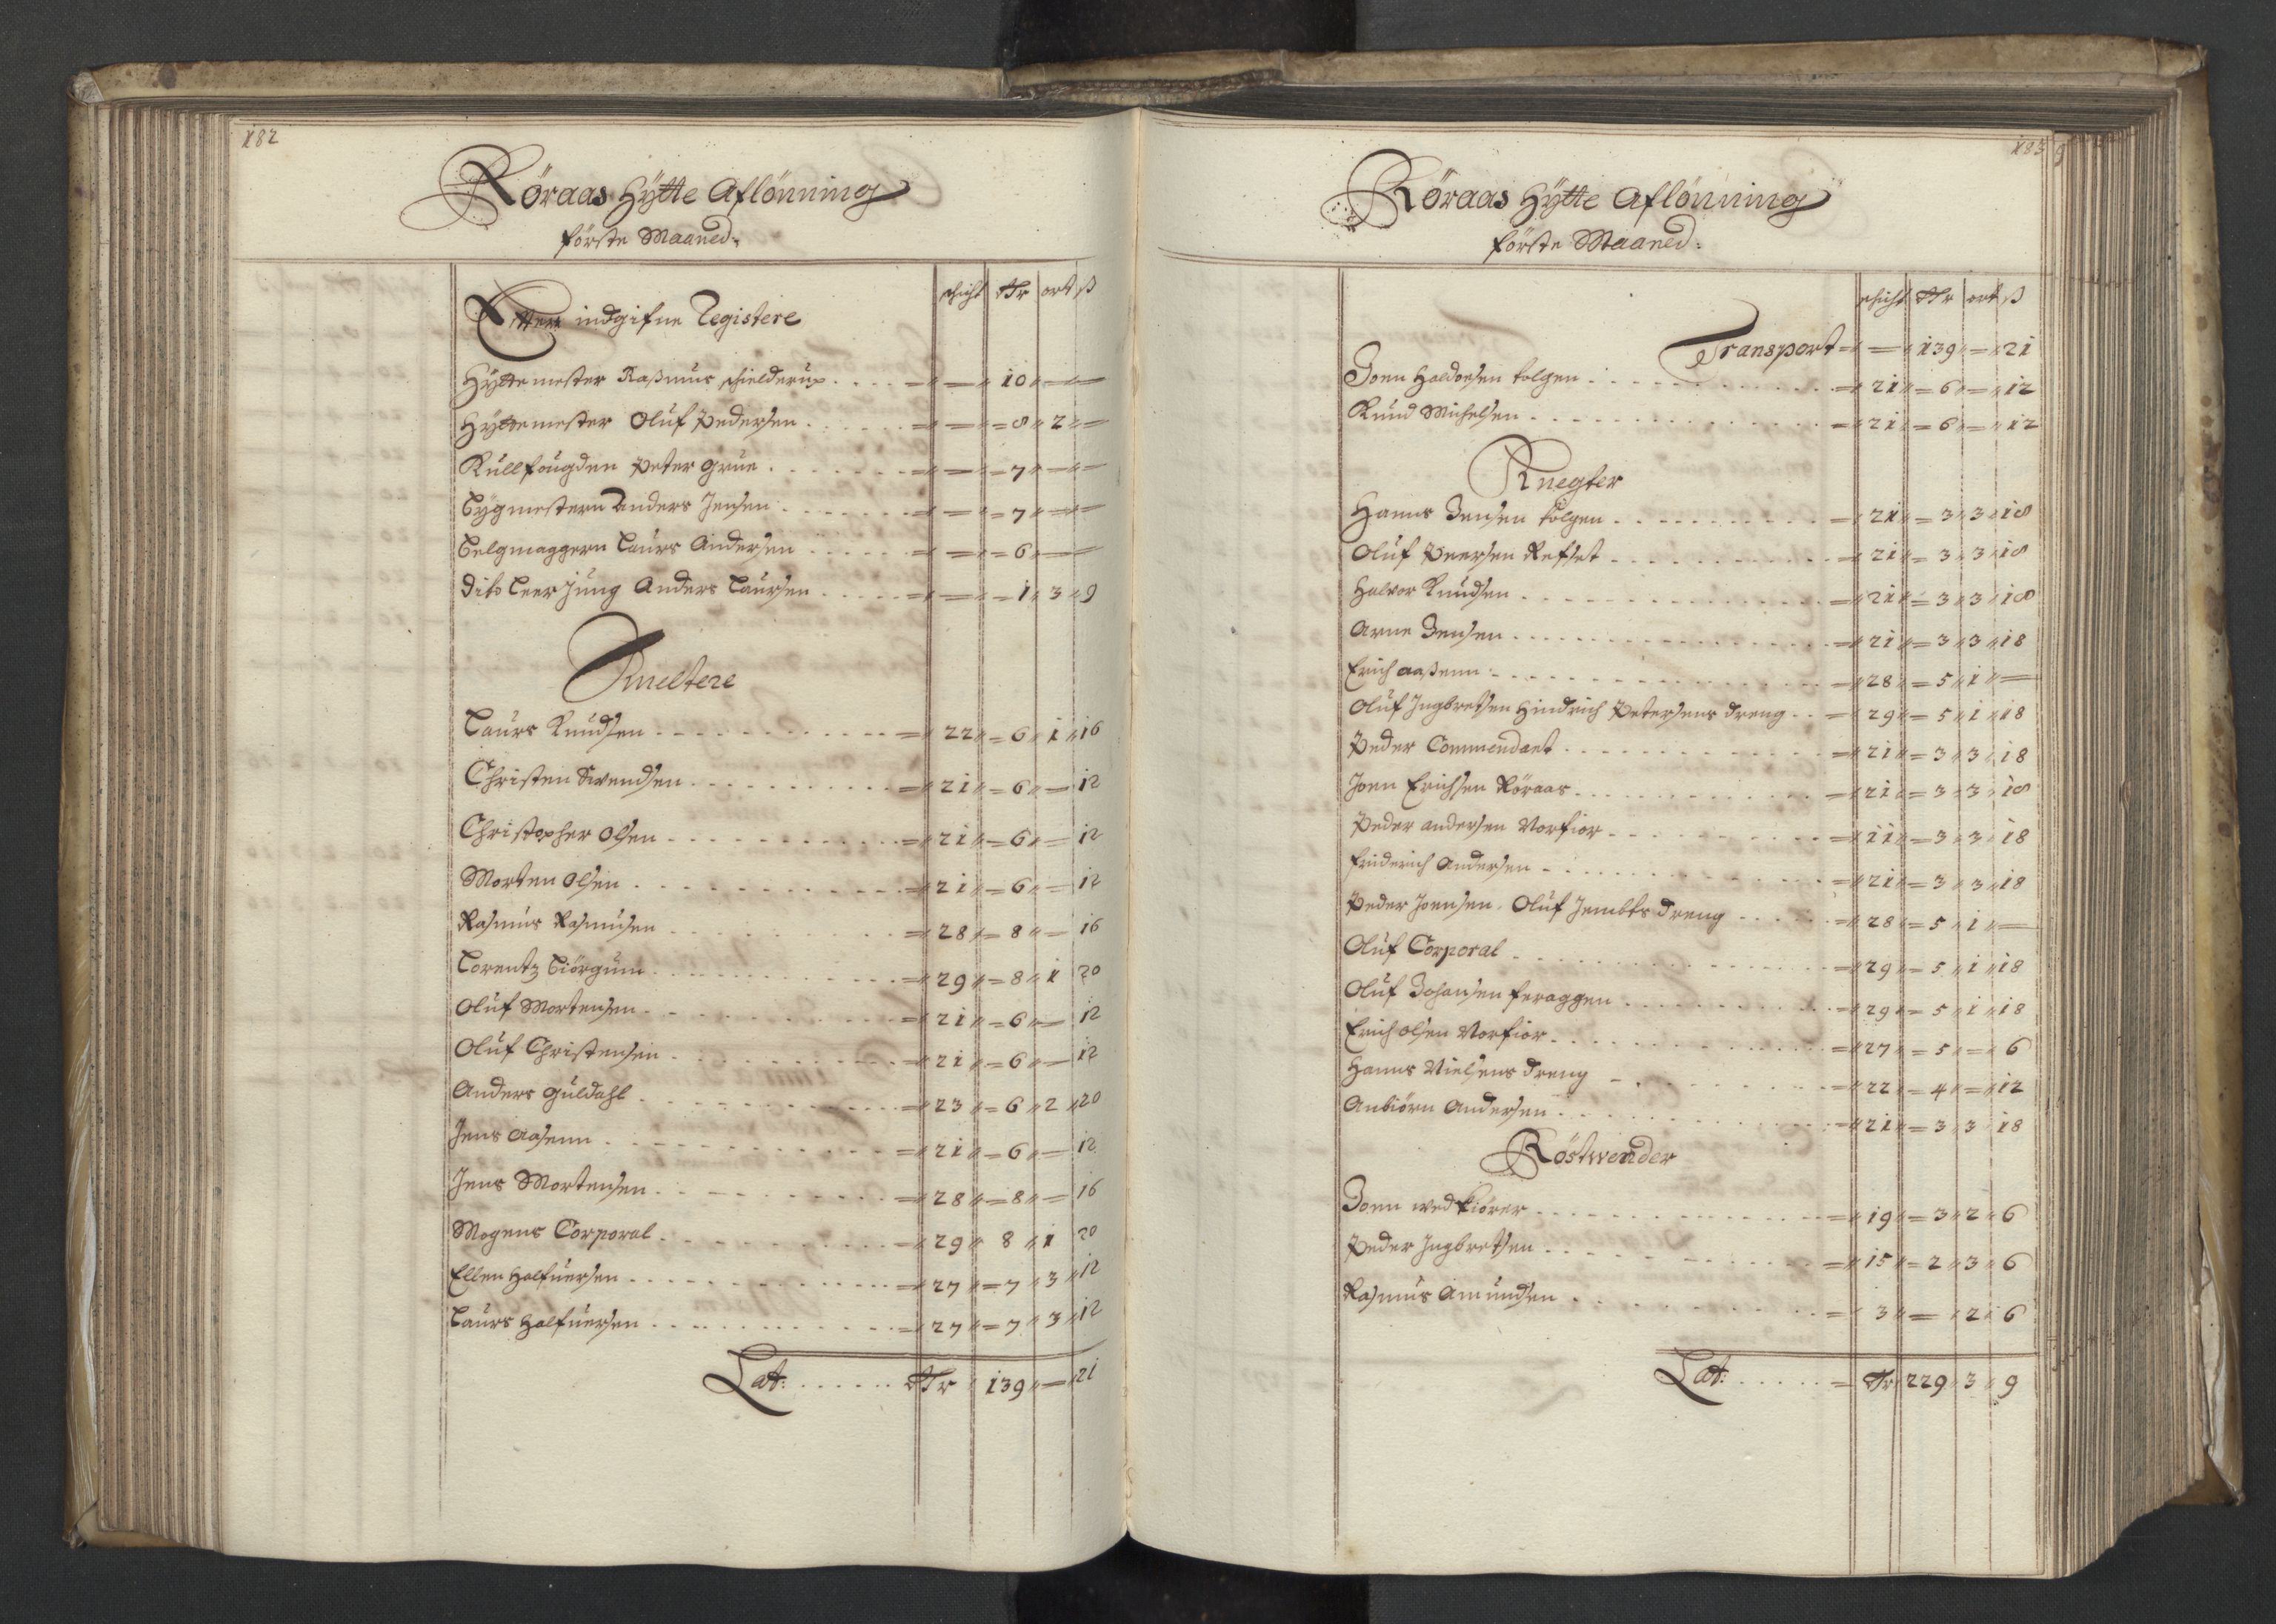 182
Röraas Hÿtte Aflönning
förste Maaned:
schicht Rdr ort ß
Efter indgifne Registere
Hÿttemester Rasmus schielderup . . . . = — 10 — —
Hÿttemester Oluf Pedersen . . . . . . = — = 8 2 —
Kullfougden Peter Grue . . . . . . . = — = 7 — —
Bÿgmestern Anders Jensen . . . . . . = — = 7 — —
Belgmaggern Laurs Andersen . . . . . = — = 6 — —
Dito Leerjung Anders Laursen . . . . . = — = 1 3 9
Smeltere
Laurs Knudsen . . . . . . . = 22 = 6 1 16
Christen Swendsen . . . . . . . = 21 = 6 — 12
Christopher Olsen . . . . . . . = 21 = 6 — 12
Morten Olsen . . . . . . . = 21 = 6 — 12
Rasmus Rasmusen . . . . . . . = 28 = 8 — 16
Lorentz Biörgum . . . . . . . = 29 = 8 1 20
Oluf Mortensen . . . . . . . = 21 = 6 — 12
Oluf Christensen . . . . . . . = 21 = 6 — 12
Anders Guldahl . . . . . . . = 23 = 6 2 20
Jens Aasenn . . . . . . . = 21 = 6 — 12
Jens Mortensen . . . . . . . = 28 = 8 — 16
Mogens Corporal . . . . . . . = 29 8 1 20
Ellen Halfuersen . . . . . . . = 27 = 7 3 12
Laurs Halfuersen . . . . . . . = 27 = 7 3 12
Lat: . . . . . . Rdr 139 — 21
183
Röraas Hÿtte Aflönning
förste Maaned:
schicht Rdr ort ß
Transport = — 139 = 21
Joen Haldorsen tolgen . . . . . . . = 21 = 6 = 12
Knud Michelsen . . . . . . . = 21 = 6 = 12
Knegter
Hanns Jensen tolgen . . . . . . . = 21 = 3 3 18
Oluf Peersen Refset . . . . . . . = 21 = 3 3 18
Halvor Knudsen . . . . . . . = 21 = 3 3 18
Arne Jensen . . . . . . . = 21 = 3 3 18
Erich Aassenn . . . . . . . = 28 = 5 1 —
Oluf Ingbretsen Hindrich Petersens dreng . . = 29 = 5 1 18
Peder Commendant . . . . . . . = 21 = 3 3 18
Joen Erichsen Röraas . . . . . . . = 21 = 3 3 18
Peder Andersen Vorfior . . . . . . . = 11 = 3 3 18
Friderich Andersen . . . . . . . = 21 = 3 3 18
Peder Joensen, Oluf Jembts dreng . . . . = 28 = 5 1 —
Oluf Corporal . . . . . . . = 29 = 5 1 18
Oluf Johansen feraggen . . . . . . . = 29 = 5 1 18
Erich Olsen Vorfior . . . . . . . = 27 = 5 = 6
Hanns Nielsens dreng . . . . . . . = 22 = 4 = 12
Anbiörn Andersen . . . . . . . = 21 = 3 3 18
Röstwender
Joen wedkiörer . . . . . . . = 19 = 3 2 6
Peder Ingbretsen . . . . . . . = 15 = 2 3 6
Rasmus Amundsen . . . . . . . = 3 = 2 6
Lat: . . . . . = Rdr 229 3 9